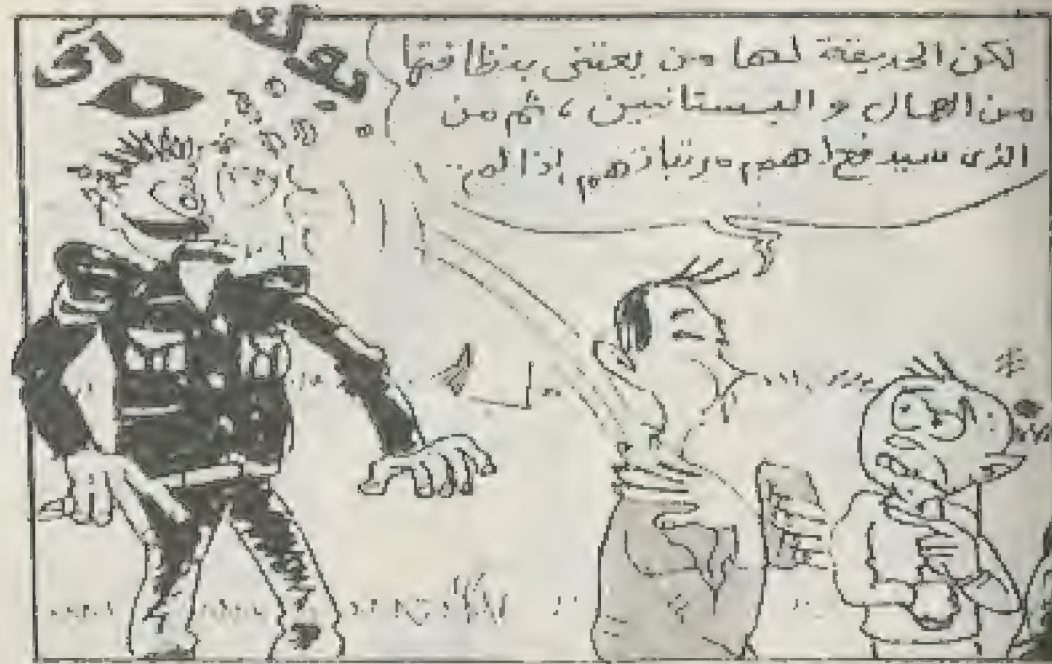 لكن الحديقة لها من يعتنى بنظافتها
من العمال و البستانيين ، ثم من
الذى سيدفع لهم مرتباتهم إذا لم